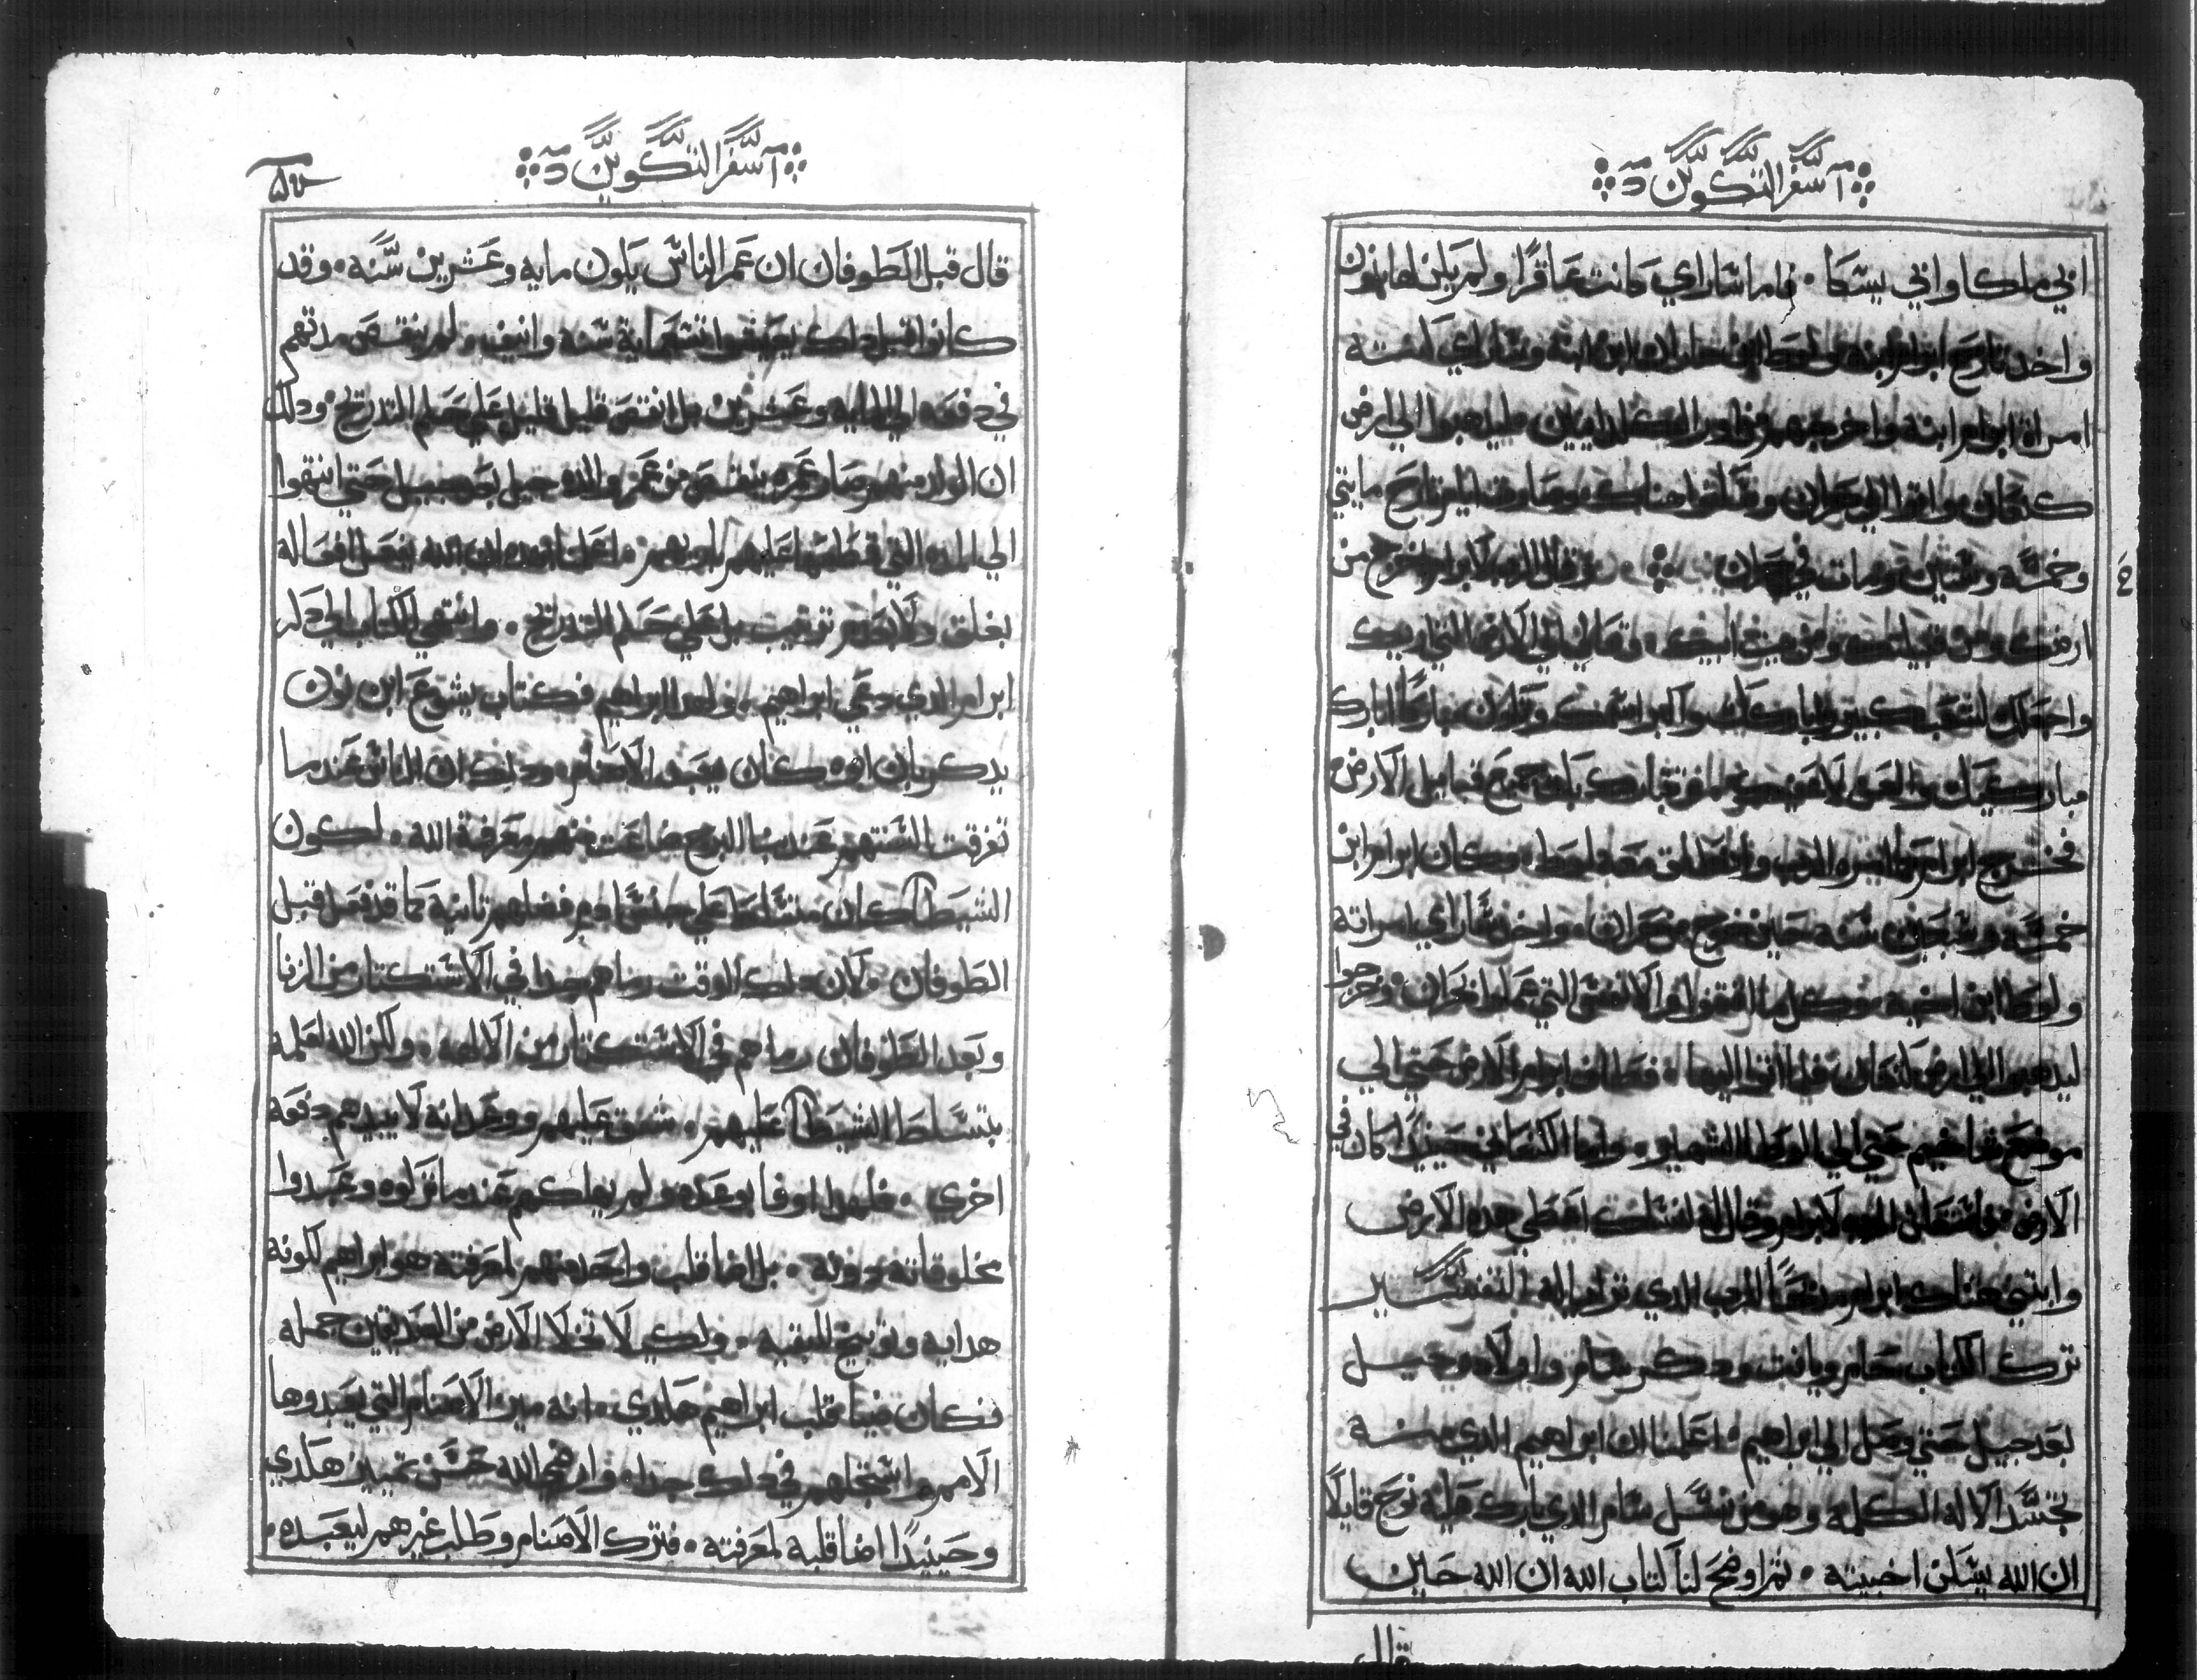 سفر التكوين
ابي ملكا وابي يسكا • فاما ساراي كانت عاقرًا ولم يكن لها بنون
واخد تارح ابرام ابنه ولوط ابن حاران ابن ابنه وساراي كنته
امراة ابرام ابنه واخرجهم من اور الكلدانيين ليدهبوا الي ارض
كنعان واتوا الي حران وسكنوا هناك وصارت ايام تارح مايتي
وخمسه وسنين ومات في حران • وقال الرب لابرام اخرج من
ارضك ومن قبيلتك ومن بيت ابيك • وتعال الي الارض التي اريك
واجعلك لشعب كبير واباركك واكبر اسمك وتكون مباركًا ابارك
مباركيك والعن لاعنيك وتتبارك بك جميع قبايل الارض
فخرج ابرام كما امره الرب وانطلق معه لوط • وكان ابرام ابن
خمسه وسبعين سنه حين خرج من حران • واخد ساراي امراته
ولوط ابن اخيه وكل ما اقتنوا والانفس التي في حران • وخرجوا
ليدهبوا الي ارض كنعان فلما اتوا اليها • فطاف ابرام الارض حتي الي
موضع شاخيم حتي الي البلوطه الشهيره • واما الكنعاني حينيدًا كان في
الارض • فاستعلن الرب لابرام وقال له لنسلك اعطي هده الارض
وابتني هناك ابرام مدبحًا للرب الدي ترايا له التفسير
ترك الكتاب حام ويافت ودكر سام واولاده جيل
بعد جيل حتي وصل الي ابراهيم • اعلمنا ان ابراهيم الدي منه
تجسد الاله الكلمه وهو من نسل سام الدي بارك عليه نوح قايلًا
ان الله يسكن اخبيته • ثم اوضح لنا كتاب الله ان الله حين
قال
سفر التكوين
قال قبل الطوفان ان عمر الناس يكون مايه وعشرين سنه • وقد
كانوا قبل دلك يعيشوا تسعماية سنه وانيف ولم ينقص مدتهم
في دفعه الي المايه وعشرين بل انقص قليل قليل علي حكم التدريج • ودلك
ان الولد منهم صار عمره ينقص من عمر والده جيل بعد جيل حتي انتهوا
الي المده التي قطعها عليهم • اعلمنا بهده ان الله يفعل افعاله
ترتيب بل علي حكم التدريج • وانتهي الكتاب الي دكر
ابرام الدي دعي ابراهيم • ولهدا ابراهيم فكتاب يشوع ابن نون
يدكر بان ابوه كان يعبد الاصنام • ودلك ان الناس عندما
تفرقت السنتهم عند بنا البرج ضاعت منهم معرفة الله • لكون
الشيطان كان متسلط علي جنس ادم فضلهم تانية كما قد فعل قبل
الطوفان • كان دلك الوقت رماهم جدا في الاستكتار من الزنا
وبعد الطوفان رماهم في الاستكتار من الالهه • ولكن الله لعلمه
بتسلط الشيطان عليهم • شفق عليهم ووعد انه لا يبيدهم دفعه
اخري • فلهدا اوفا بوعده ولم يهلكهم عندما تركوه وعبدوا
مخلوقاته دونه • بل اضا قلب واحد منهم لمعرفته هو ابراهيم لكونه
هدايه وتوبيخ للبقيه • ولكي لا تخلا الارض من الصديقين جمله
فكان ضيا قلب ابراهيم هكدي • انه ميز الاصنام التي يعبدوها
الامم واستجهلهم في دلك جدا • وارضي الله حسن تمييز هكدي
وحينيدًا اضا قلبه لمعرفته • فترك الاصنام وطلب غيرهم ليعبده •